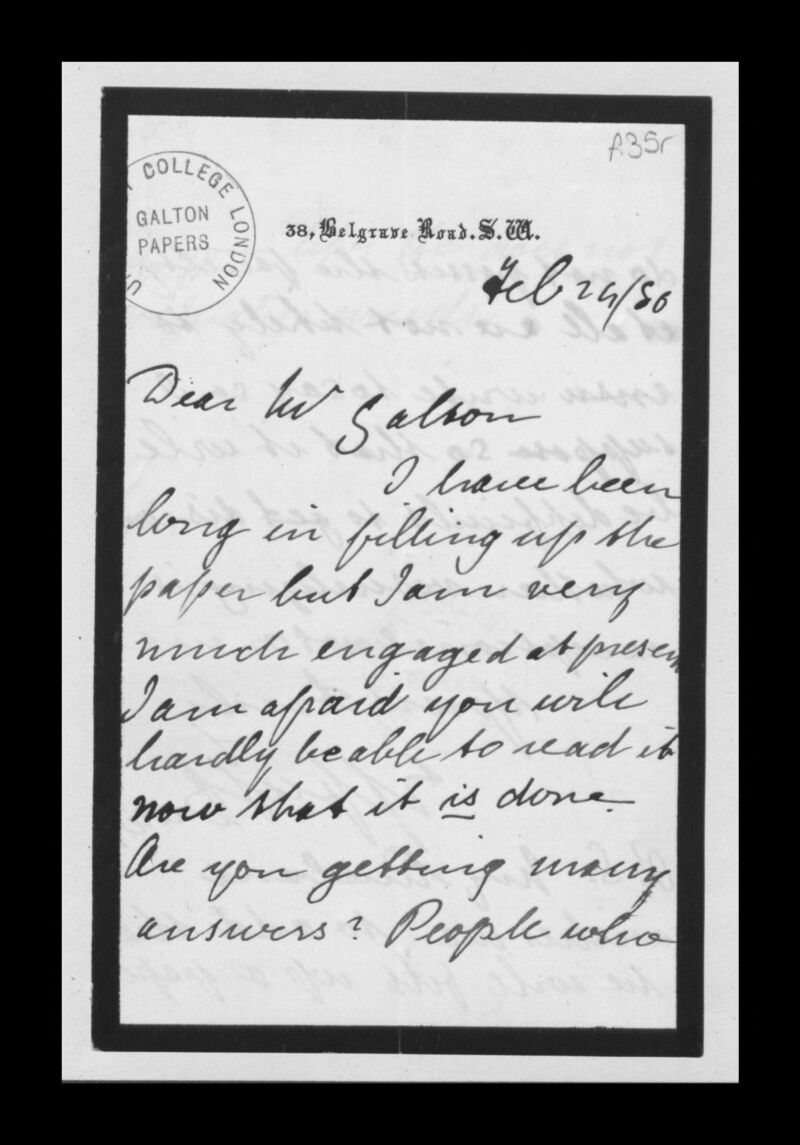 f.35r
COLLEGE LONDON
GALTON
PAPERS
38, Belgrave Road. S.W.
Feb 24/80
Dear Mr Galton
I have been
long in filling up the
paper but I am very
much engaged at present
I am afraid you will
hardly be able to read it
now that it is done.
Are you getting many
answers? People who